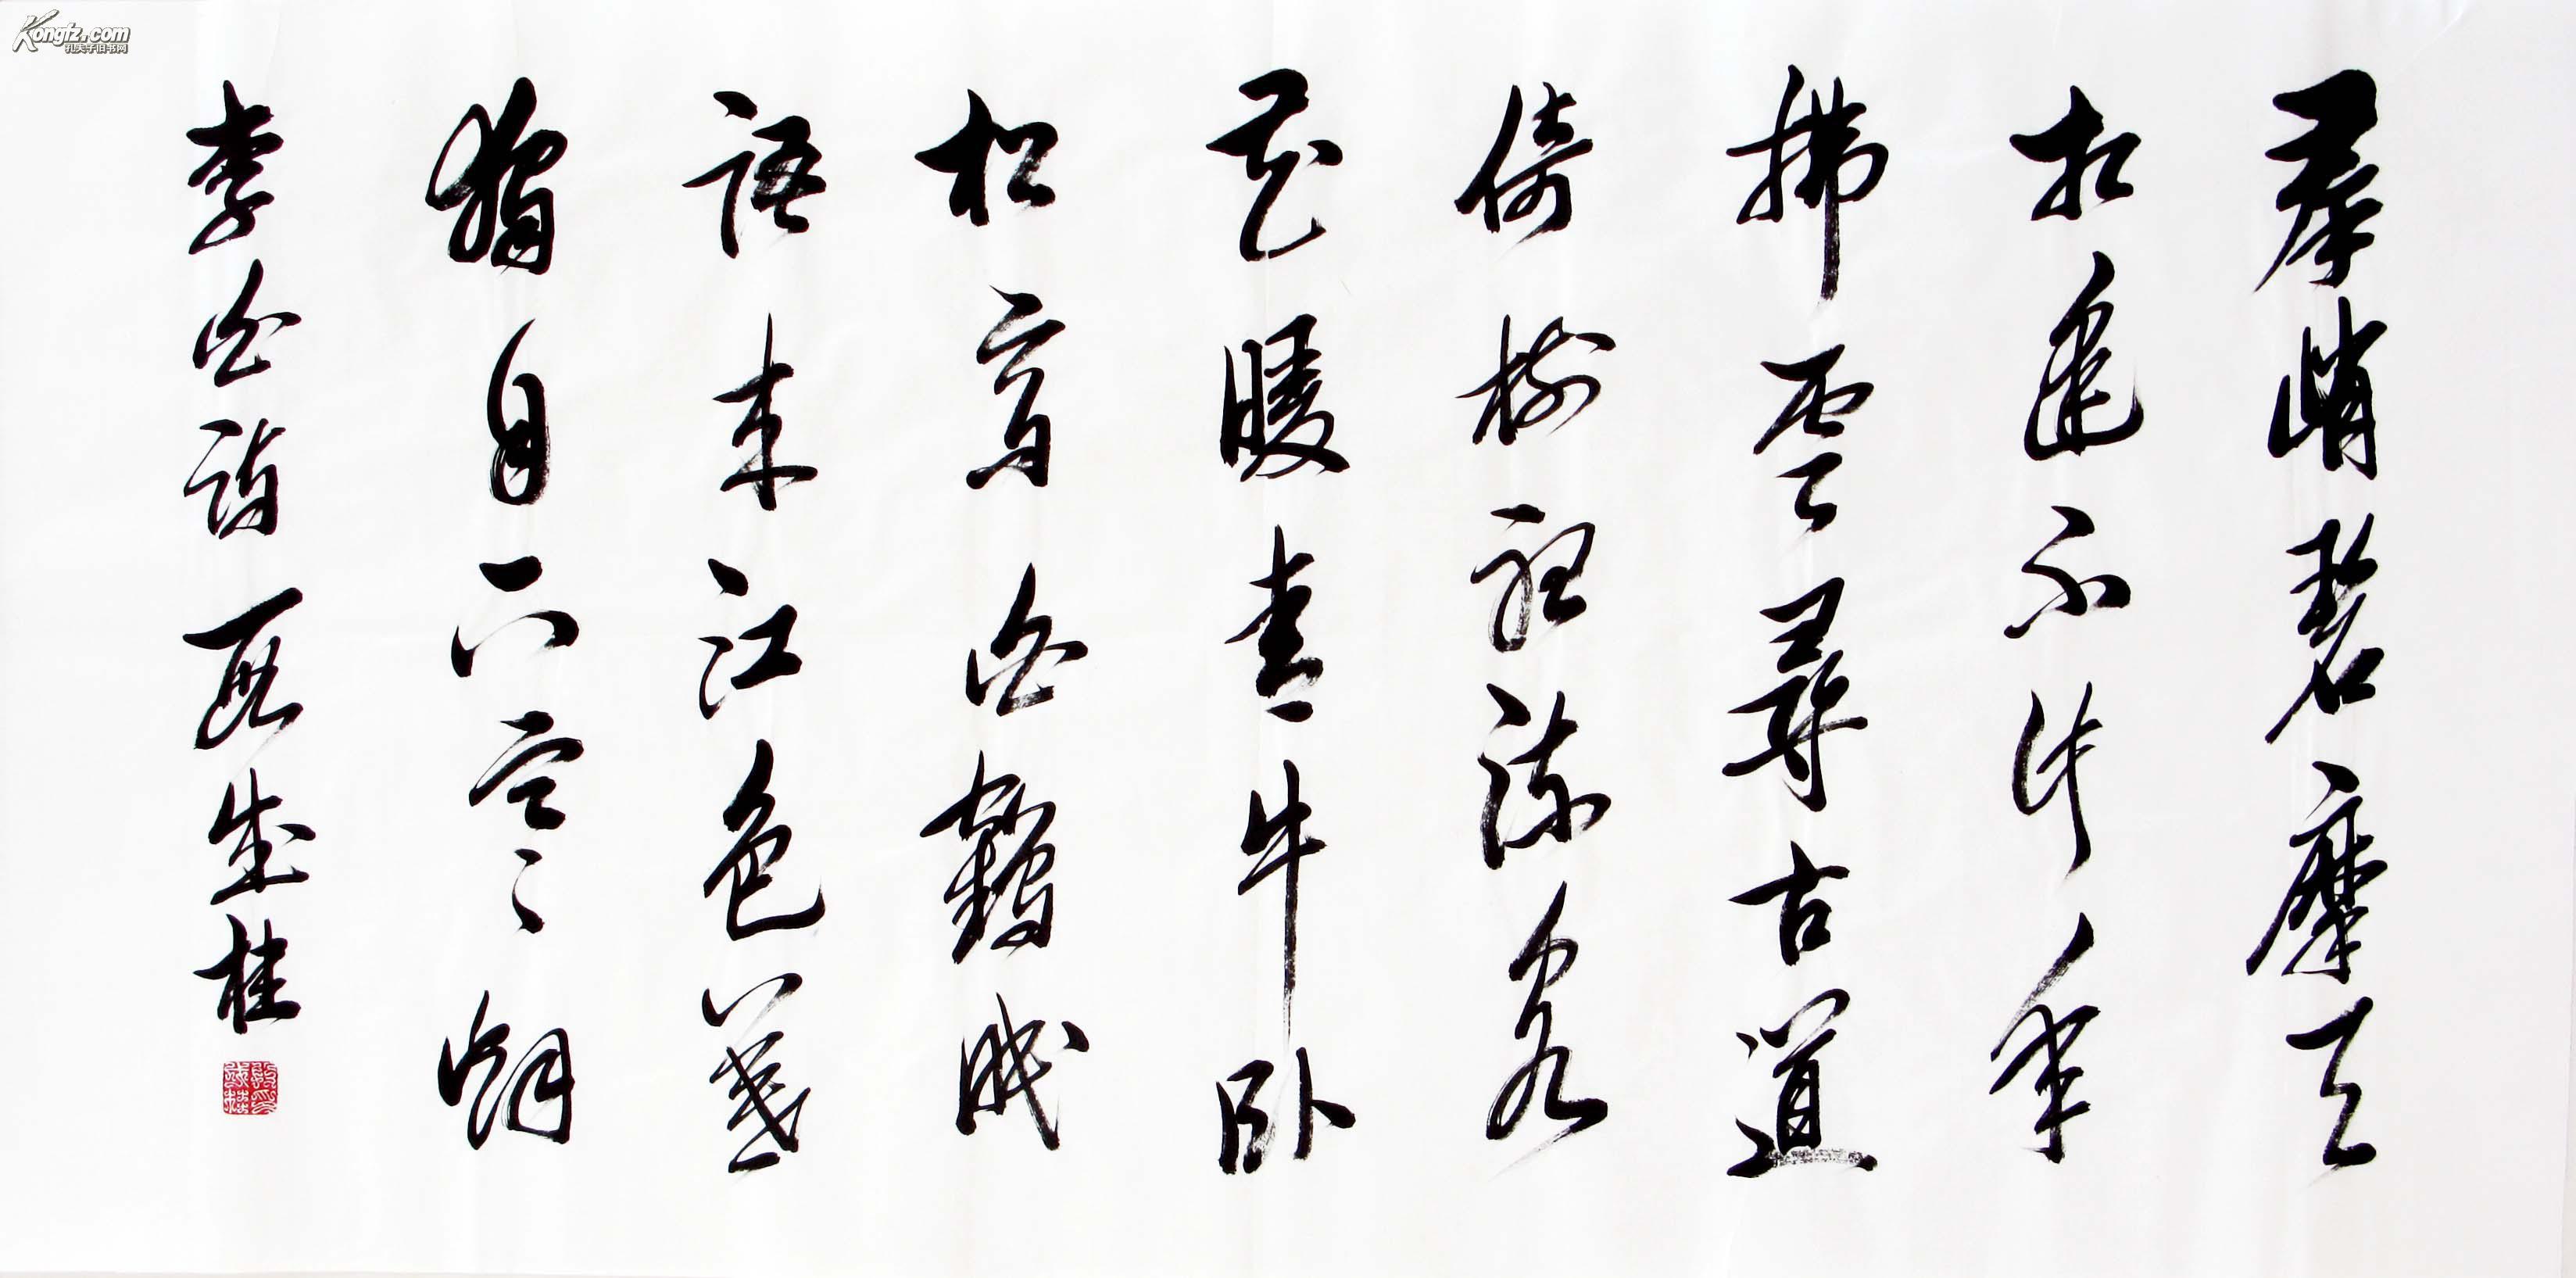 Kongfz.com
孔夫子旧书网
羣峭碧摩天
遥不计年
拂雲尋古道
倚树听流泉
花暖青牛卧
松高白鶴眠
語来江色暮
獨自下寒烟
李白詩 殷成桂